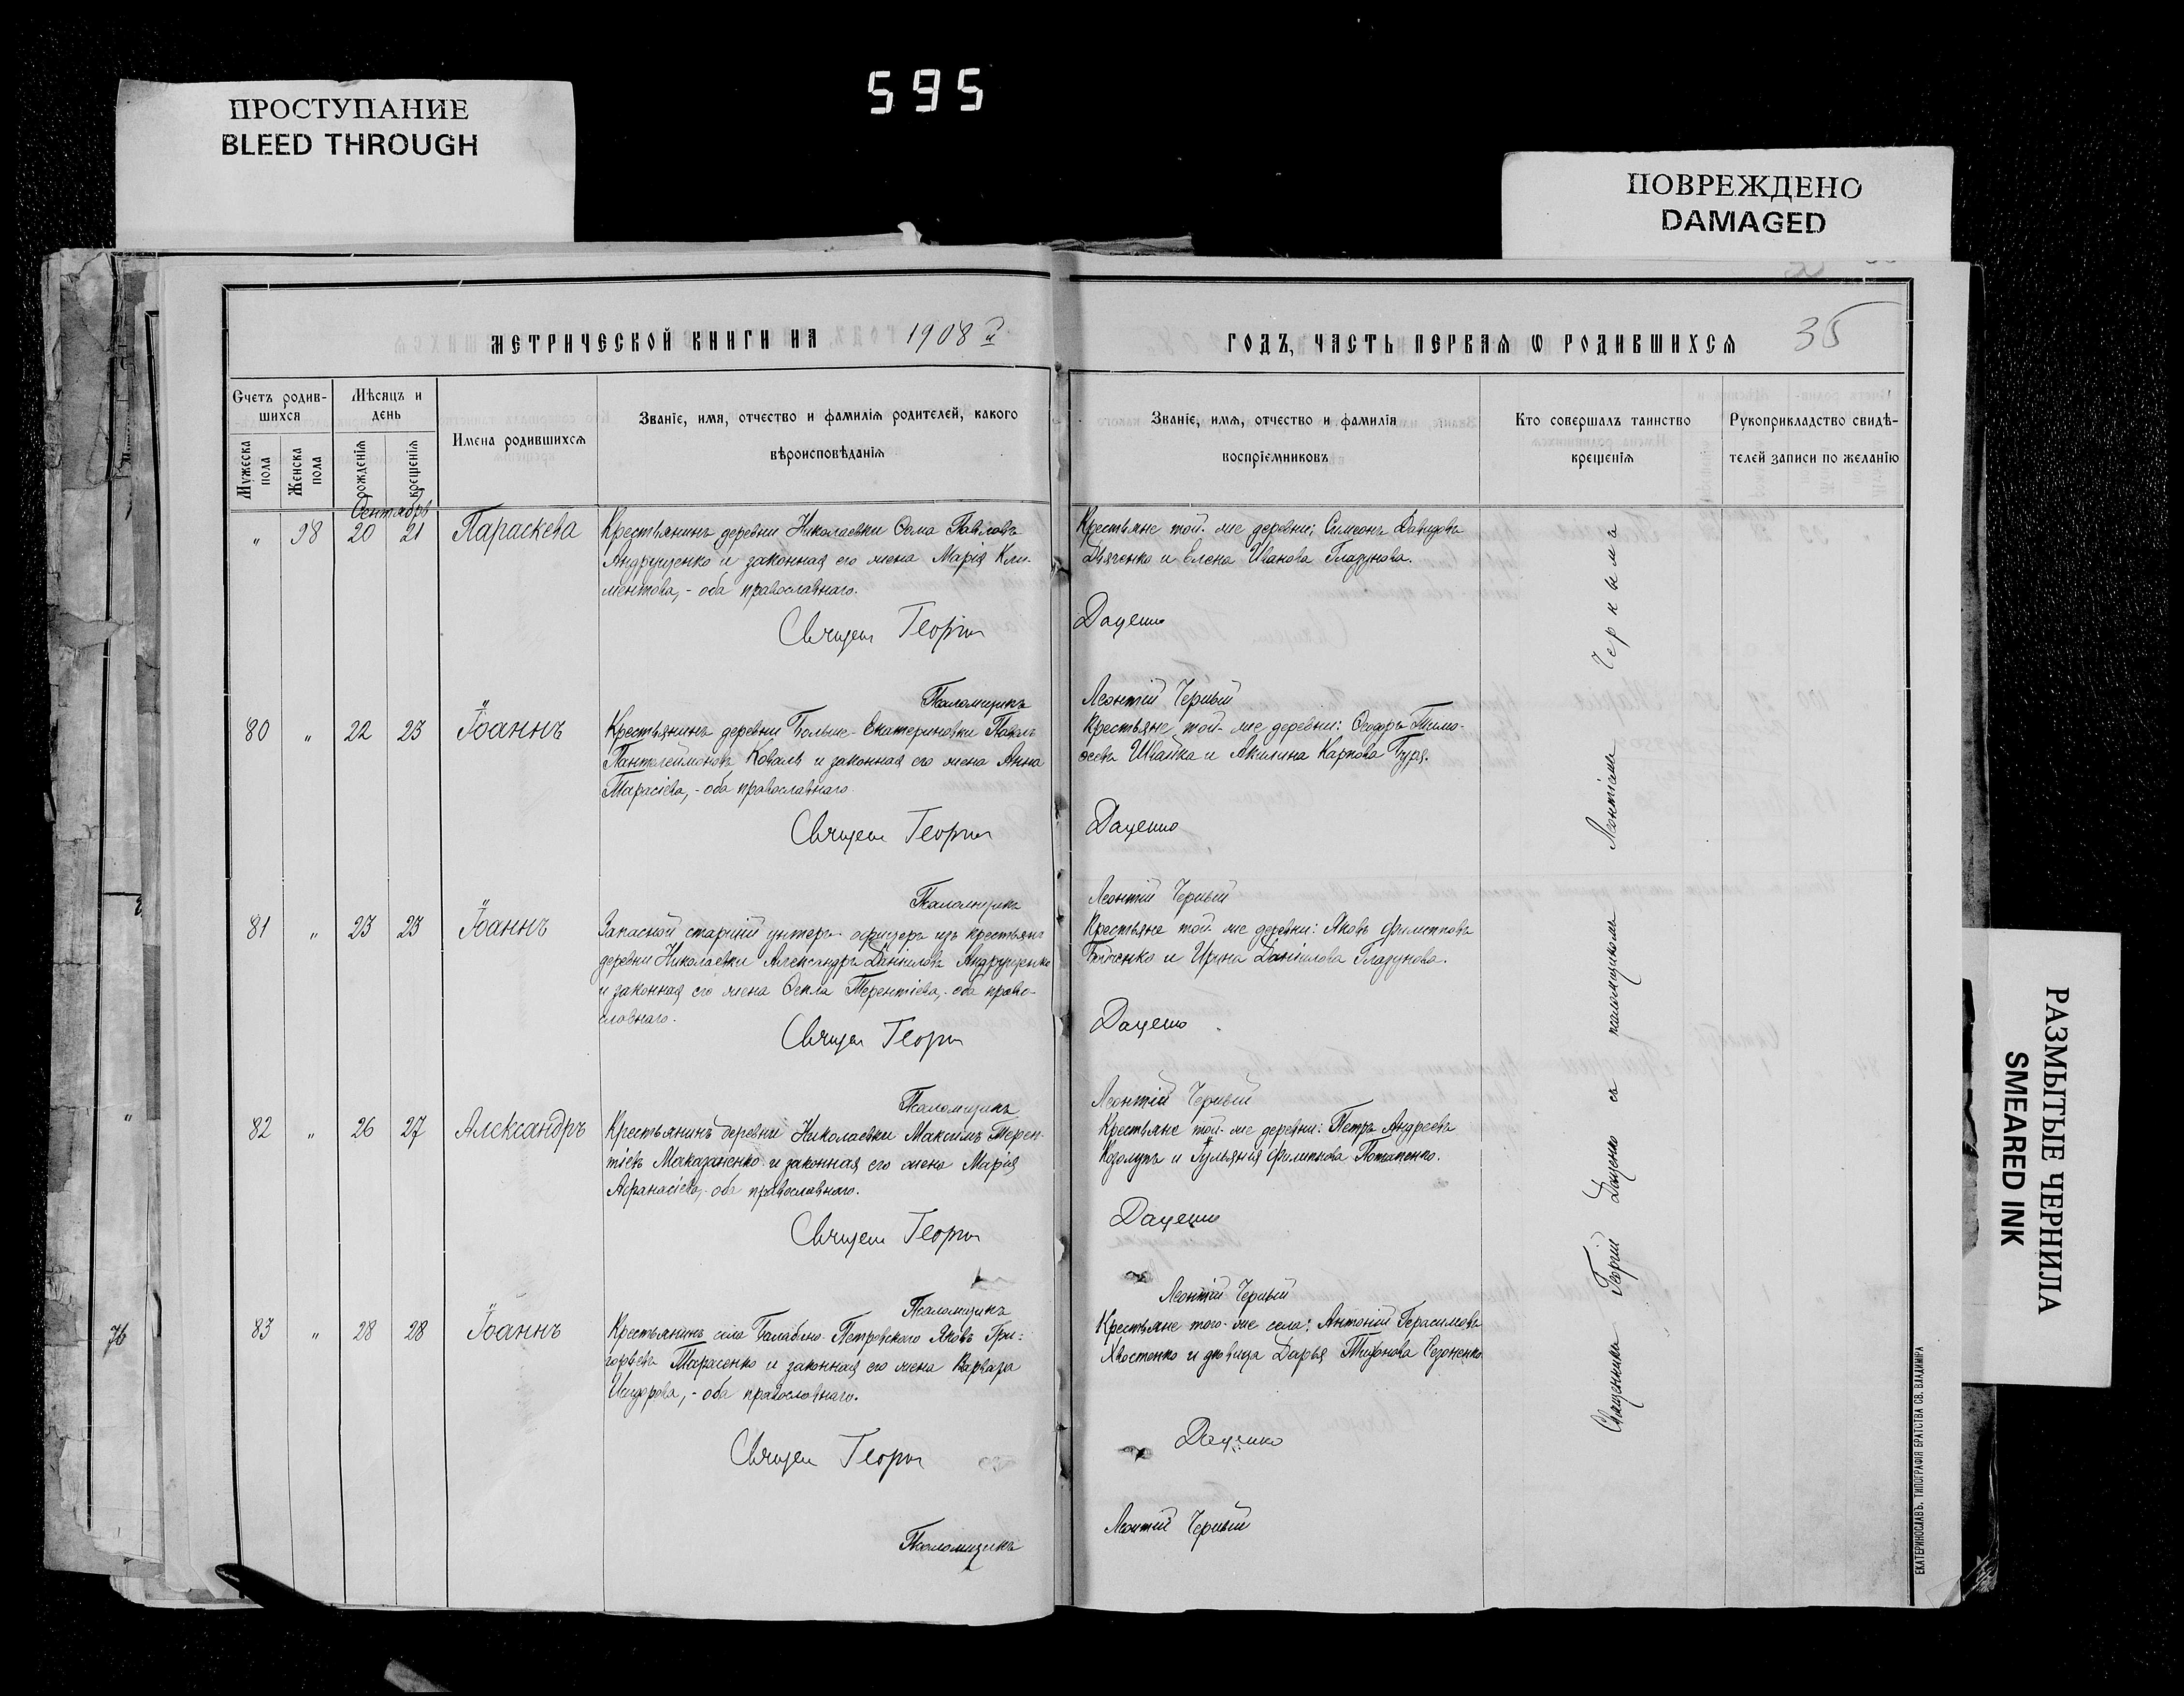 595
ПРОСТУПАНИЕ
BLEED THROUGH
ПОВРЕЖДЕНО
DAMAGED
МЕТРИЧЕСКОЙ КНИГИ НА 1908 й
ГОДЪ, ЧАСТЬ ПЕРВАЯ Ѡ РОДИВШИХСЯ 35
Счетъ родив-
шихся
Мѣсяцъ и
день
Мужеска
пола
Женска
пола
рожденія
крещенія
Имена родившихся
Званіе, имя, отчество и фамилія родителей, какого
вѣроисповѣданія
Званіе, имя, отчество и фамилія
воспріемниковъ
Кто совершалъ таинство
крещенія
Рукоприкладство свидѣ-
телей записи по желанію
Сентябрь
„ 98 20 21 Параскева
Крестьянинъ деревни Николаевки Ѳома Павловъ
Андрущенко и законная его жена Марія Кли-
ментова, - оба православнаго.
Священ Георгій
Псаломщикъ
Крестьяне той-же деревни: Симеонъ Давидовъ
Дьяченко и Елена Иванова Глазунова.
Даценко
Леонтій Черный
80 „ 22 23 Іоаннъ
Крестьянинъ деревни Больше-Екатериновки Павелъ
Пантелеймоновъ Коваль и законная его жена Анна
Тарасіева, - оба православнаго
Священ Георгій
Псаломщикъ
Крестьяне той-же деревни: Ѳеодоръ Тимо-
ѳеевъ Швайка и Акилина Карпова Буря.
Даценко
Леонтій Черный
81 „ 23 23 Іоаннъ
Запасной старшій унтеръ-офицеръ изъ крестьянъ
деревни Николаевки Александръ Даніиловъ Андрущенко
и законная его жена Ѳекла Терентіева, - оба право-
славнаго.
Священ Георгій
Псаломщикъ
Крестьяне той-же деревни: Яковъ Филипповъ
и Ирина Даніилова Глазунова.
Даценко
Леонтій Черный
82 „ 26 27 Александръ
Крестьянинъ деревни Николаевки Максимъ Терен-
тіевъ Маказаненко и законная его жена Марія
Аѳанасіева, - оба православнаго.
Священ Георгій
Псаломщикъ
Крестьяне той-же деревни: Петръ Андреевъ
Козолупъ и Іульянія Филиппова Потапенко.
Даценко
Леонтій Черный
83 „ 28 28 Іоаннъ
Крестьянинъ села Балабино-Петровского Яковъ Гри-
горьевъ Тарасенко и законная его жена Варвара
Исидорова, - оба православнаго.
Священ Георгій
Псаломщикъ
Крестьяне того-же села: Антоній Герасимовъ
Хвостенко и дѣвица Дарья Тихонова
Даценко
Леонтій Черный
Священникъ Георгій Даценко съ псаломщикомъ Леонтіемъ Чернымъ
76
ЕКАТЕРИНОСЛАВЪ. ТИПОГРАФІЯ БРАТСТВА СВ. ВЛАДИМІРА
РАЗМЫТЫЕ ЧЕРНИЛА
SMEARED INK